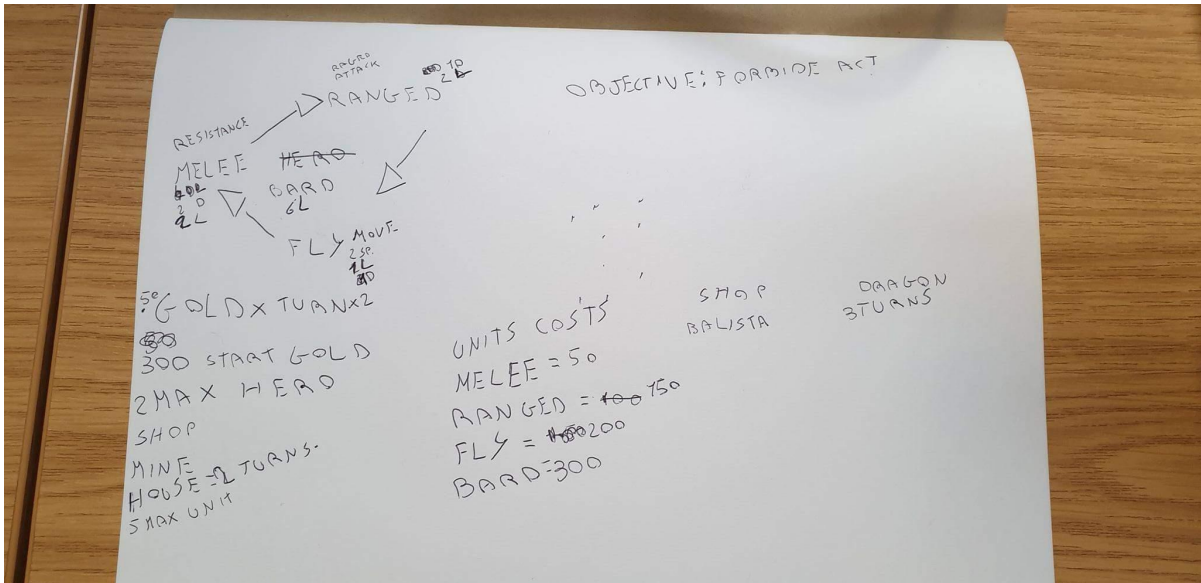 RAGED
ATTACK
1D
2L
RANGED
OBJECTIVE: FORBIDE ACT
RESISTANCE
MELEE
2 D
2L
HERO
BARD
6L
FLY MOVE
2 SP.
1L
1D
50 GOLD X TURN X2
300 START GOLD
2 MAX HERO
SHOP
MINE
HOUSE = 2 TURNS.
5 MAX UNIT
UNITS COSTS
MELEE = 50
RANGED = 100 150
FLY = 200
BARD = 300
SHOP
BALISTA
DRAGON
3TURNS